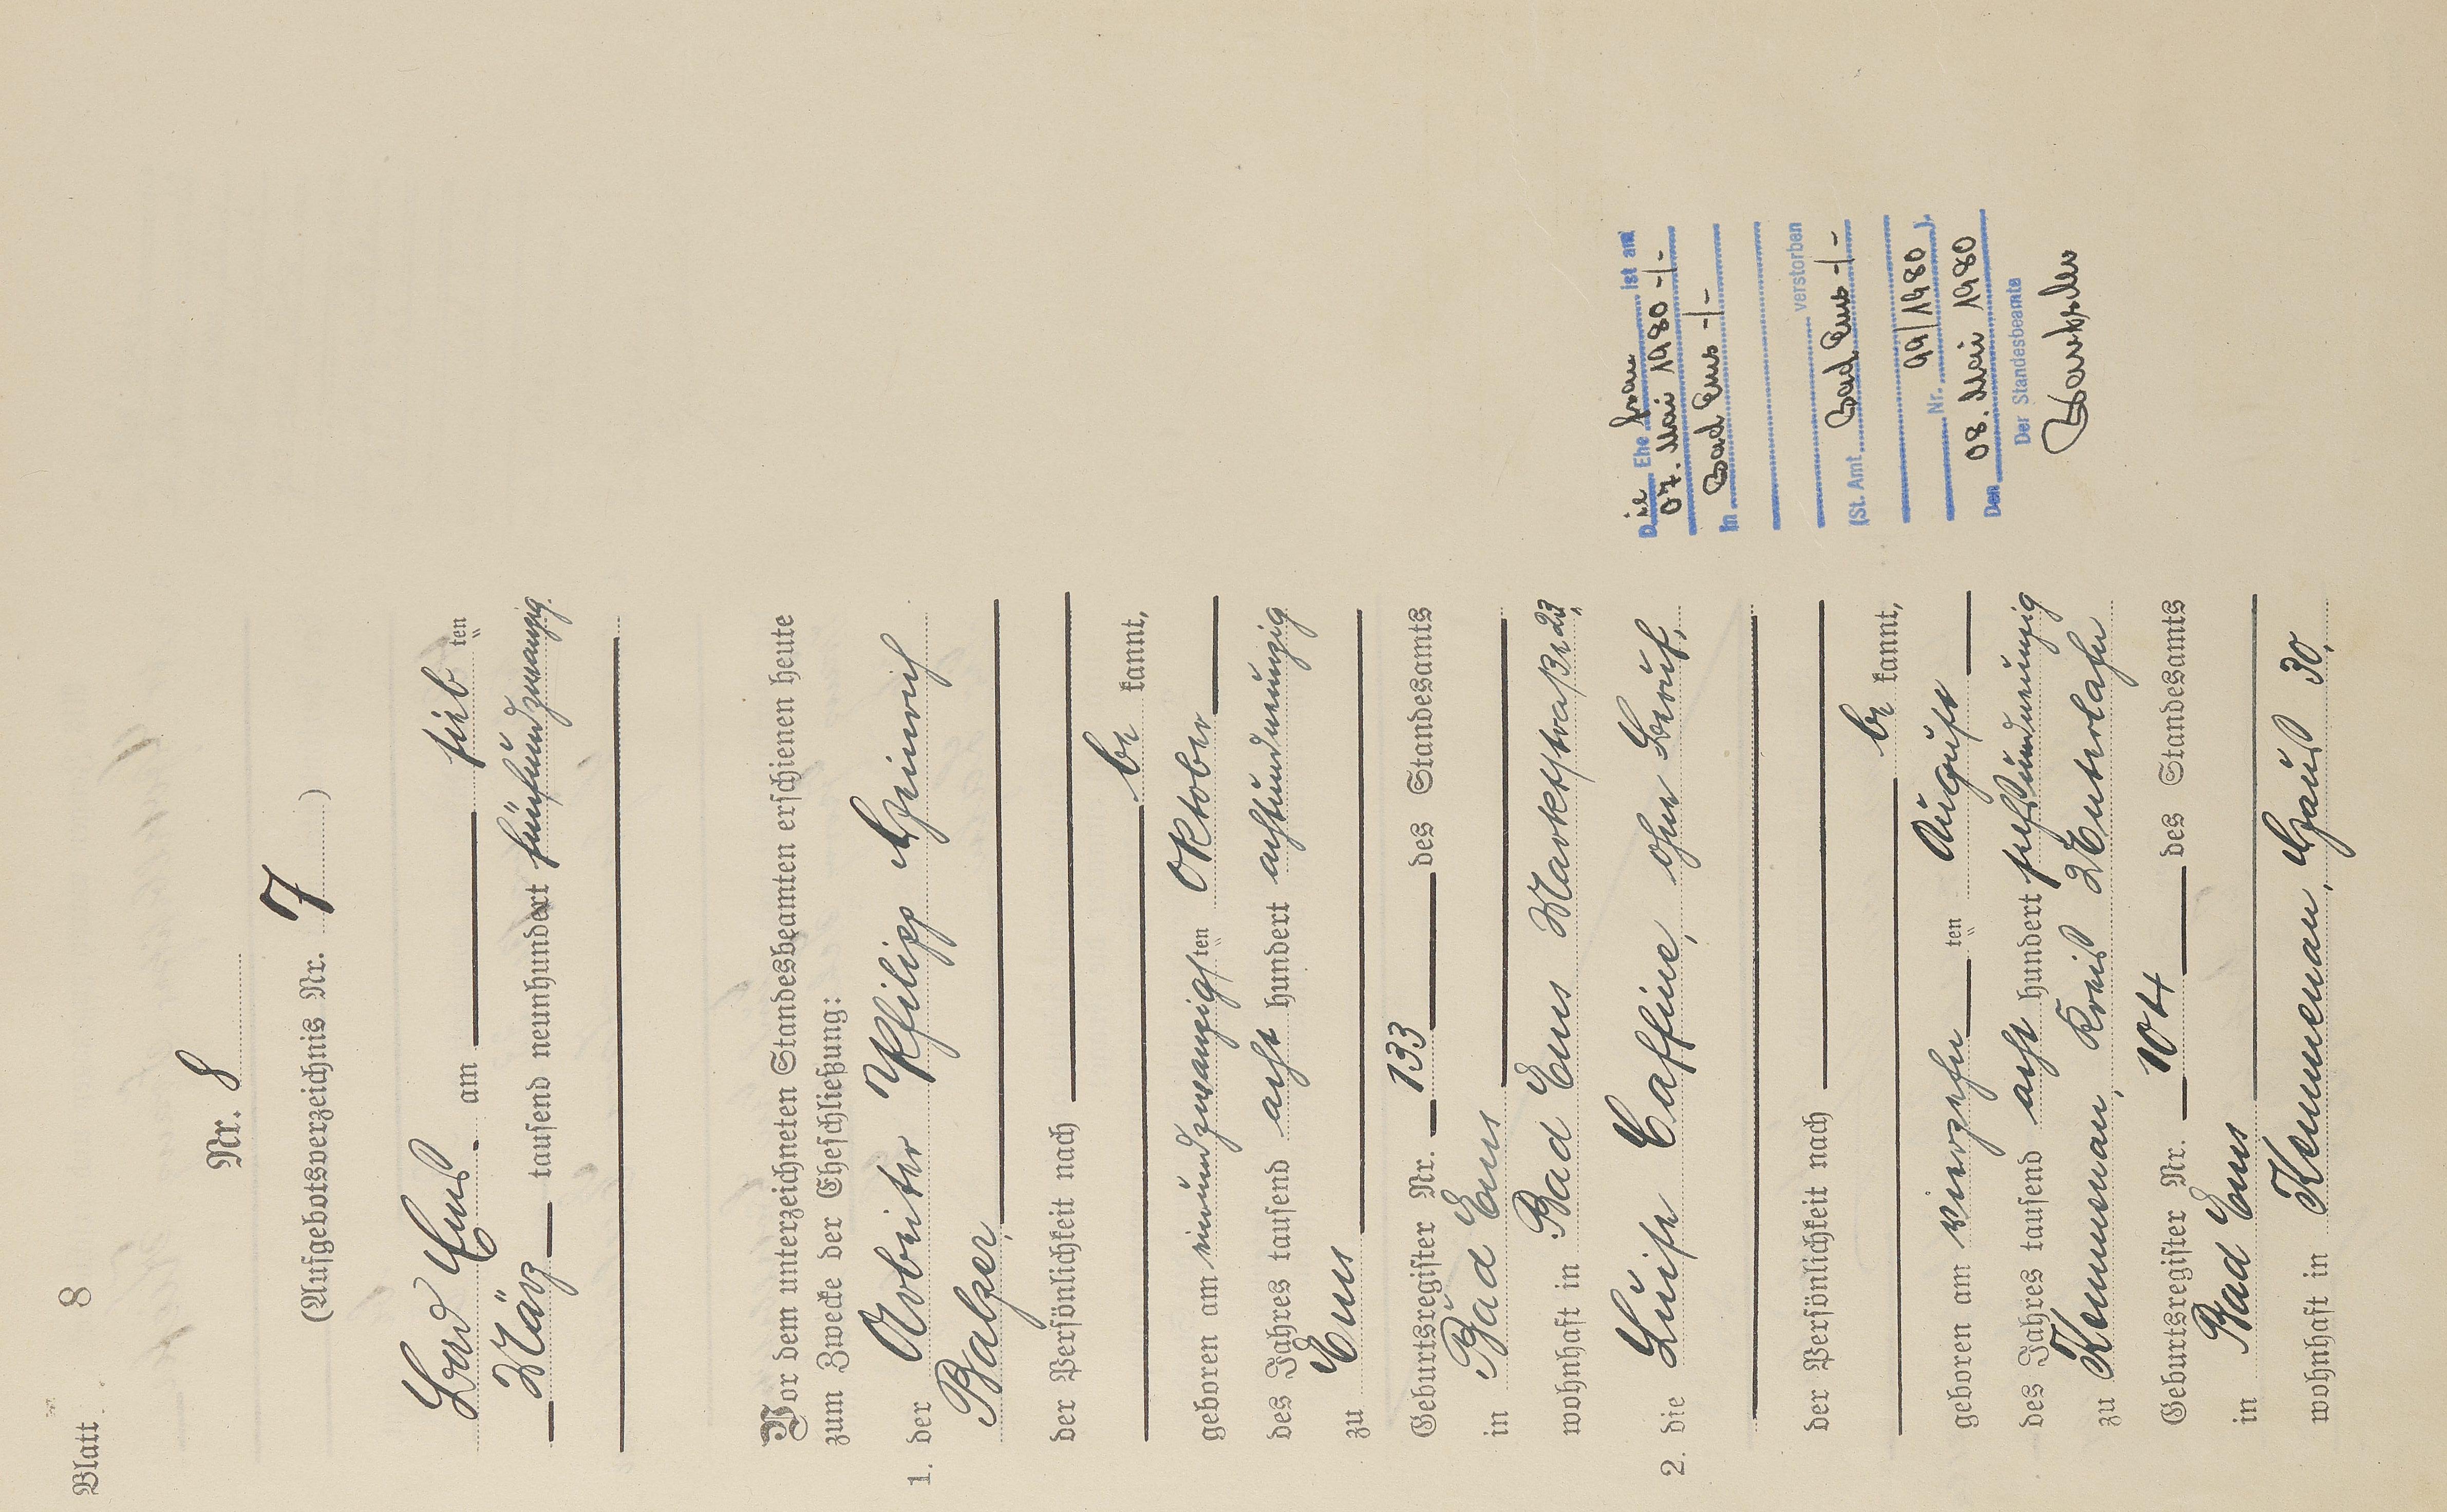 Blatt 8
Nr. 8
(Aufgebotsverzeichnis Nr. 7)
Bad Ems, am sieb ten
März tausend neunhundert fünfundzwanzig.
Vor dem unterzeichneten Standesbeamten erschienen heute
zum Zwecke der Eheschließung:
1. der Arbeiter Philipp Heinrich
Balzer,
der Persönlichkeit nach
be kannt,
geboren am neunundzwanzigsten Oktober
des Jahres tausend acht hundert achtundneunzig
zu Ems
Geburtsregister Nr. 133 des Standesamts
in Bad Ems
wohnhaft in Bad Ems Marktstraße 23,
2. die Luise Caffine, ohne Beruf,
der Persönlichkeit nach
be kannt,
geboren am vierzehn ten August
des Jahres tausend acht hundert sechsundneunzig
zu Kemmenau, Kreis Unterlahn
Geburtsregister Nr. 104 des Standesamts
in Bad Ems
wohnhaft in Kemmenau, Haus 30,
Die Ehefrau ist am
07. Mai 1980 -/-
In Bad Ems -/-
verstorben
(St. Amt Bad Ems -/-
Nr. 99/1980 ).
Den 08. Mai 1980
Der Standesbeamte